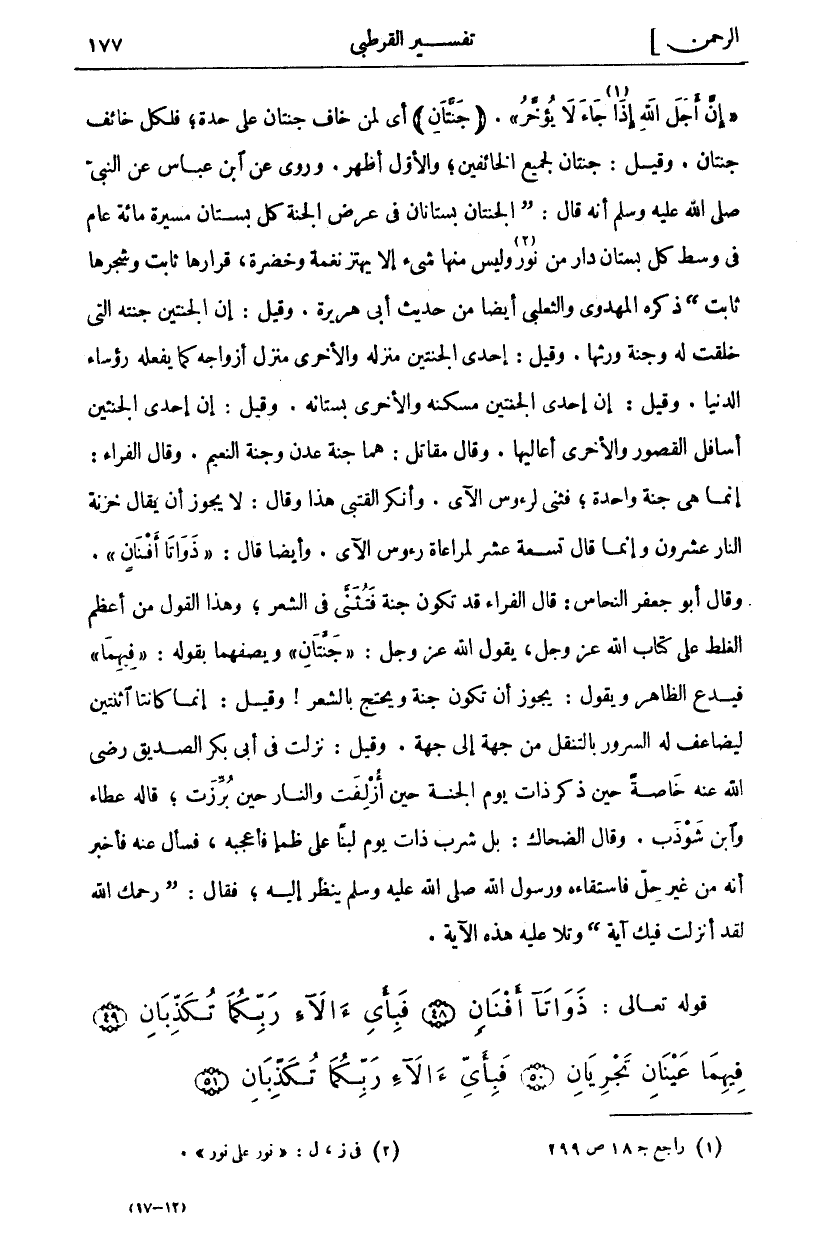 الرحمن ] تفسير القرطبي ١٧٧
«إِنَّ أَجَلَ اللهِ إِذَا جَاءَ لَا يُؤَخَّرُ»(١) . ﴿جَنَّتَانِ﴾ أى لمن خاف جنتان على حدة؛ فلكل خائف
جنتان . وقيل : جنتان لجميع الخائفين؛ والأوّل أظهر . وروى عن ٱبن عباس عن النبىّ
صلى الله عليه وسلم أنه قال : ” الجنتان بستانان فى عرض الجنة كل بستان مسيرة مائة عام
فى وسط كل بستان دار من نور(٢) وليس منها شىء إلا يهتز نغمة وخضرة، قرارها ثابت وشجرها
ثابت “ ذكره المهدوى والثعلبى أيضا من حديث أبى هريرة . وقيل : إن الجنتين جنته التى
خلقت له وجنة ورثها . وقيل : إحدى الجنتين منزله والأخرى منزل أزواجه كما يفعله رؤساء
الدنيا . وقيل : إن إحدى الجنتين مسكنه والأخرى بستانه . وقيل : إن إحدى الجنتين
أسافل القصور والأخرى أعاليها . وقال مقاتل : هما جنة عدن وجنة النعيم . وقال الفراء :
إنما هى جنة واحدة ؛ فثنى لرءوس الآى . وأنكر القتبى هذا وقال : لا يجوز أن يقال خزنة
النار عشرون وإنما قال تسعة عشر لمراعاة رءوس الآى . وأيضا قال : «ذَوَاتَا أَفْنَانٍ» .
وقال أبو جعفر النحاس : قال الفراء قد تكون جنة فَتُثَنَّى فى الشعر ؛ وهذا القول من أعظم
الغلط على كتاب الله عز وجل، يقول الله عز وجل : «جَنَّتَانِ» ويصفهما بقوله : «فِيهِمَا»
فيدع الظاهر ويقول : يجوز أن تكون جنة ويحتج بالشعر ! وقيل : إنما كانتا ٱثنتين
ليضاعف له السرور بالتنقل من جهة إلى جهة . وقيل : نزلت فى أبى بكر الصديق رضى
الله عنه خَاصةً حين ذكر ذات يوم الجنة حين أُزْلِفَت والنار حين بُرِّزَت ؛ قاله عطاء
وٱبن شَوْذَب . وقال الضحاك : بل شرب ذات يوم لبنًا على ظمإ فأعجبه ، فسأل عنه فأخبر
أنه من غير حِلّ فاستقاءه ورسول الله صلى الله عليه وسلم ينظر إليه ؛ فقال : ” رحمك الله
لقد أنزلت فيك آية “ وتلا عليه هذه الآية .
قوله تعالى : ذَوَاتَآ أَفْنَانٍ ﴿٤٨﴾ فَبِأَىِّ ءَالَآءِ رَبِّكُمَا تُكَذِّبَانِ ﴿٤٩﴾
فِيهِمَا عَيْنَانِ تَجْرِيَانِ ﴿٥٠﴾ فَبِأَىِّ ءَالَآءِ رَبِّكُمَا تُكَذِّبَانِ ﴿٥١﴾
(١) راجع ج ١٨ ص ٢٩٩ (٢) فى ز ، ل : «نور على نور» .
(١٧-١٢)